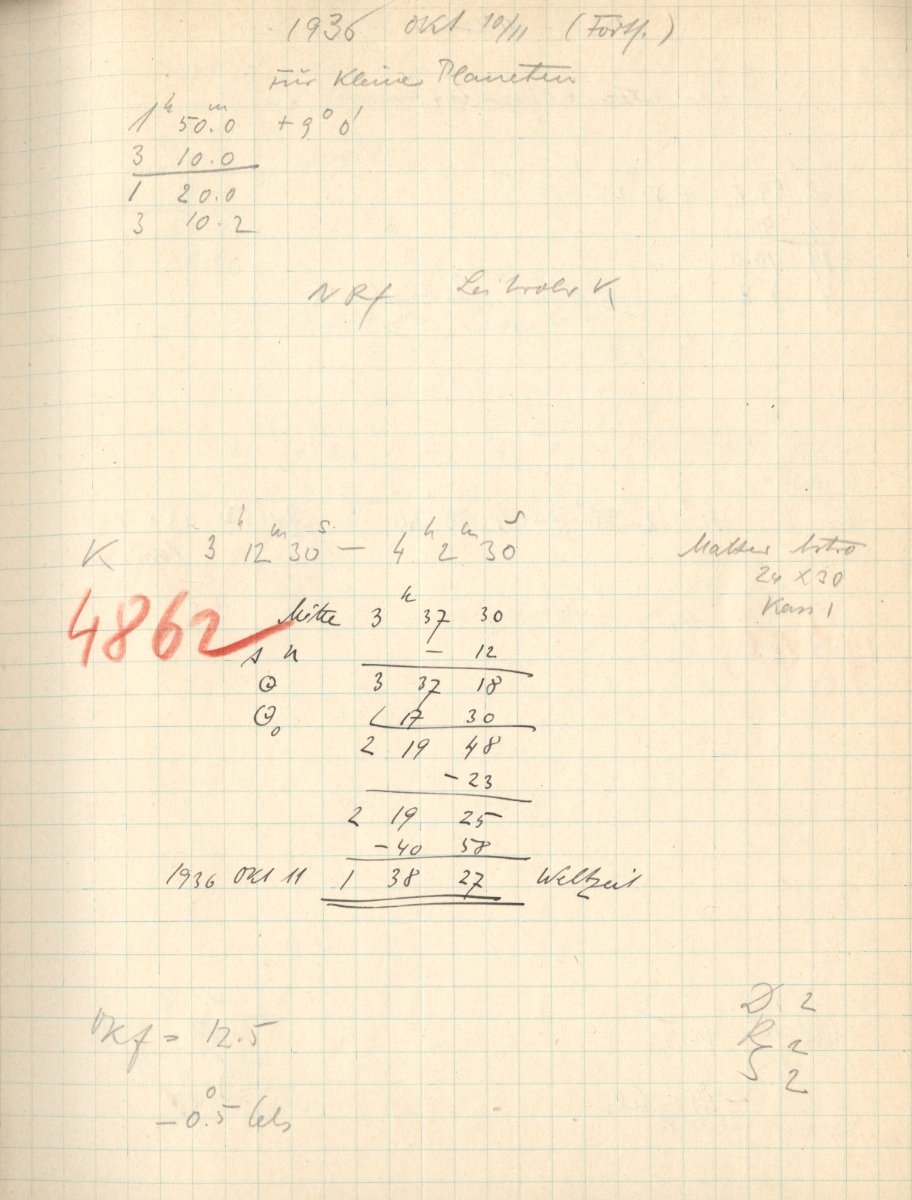 1936 Okt 10/11 (Forts.)
für Kleine Planeten
1h 50.0m +9° 0'
3 10.0
1 20.0
3 10.2
NRf Leitrohr K
K 3h 12m 30s – 4h 2m 30s
Matter Astro
24 x 30
Kass 1
4862
Mitte 3h 37 30
s u – 12
⊙ 3 37 18
⊙o 1 17 30
2 19 48
-23
2 19 25
-40 58
1936 Okt 11 1 38 27 Weltzeit
Okf = 12.5
-0.5° Cels
D 2
R 2
S 2